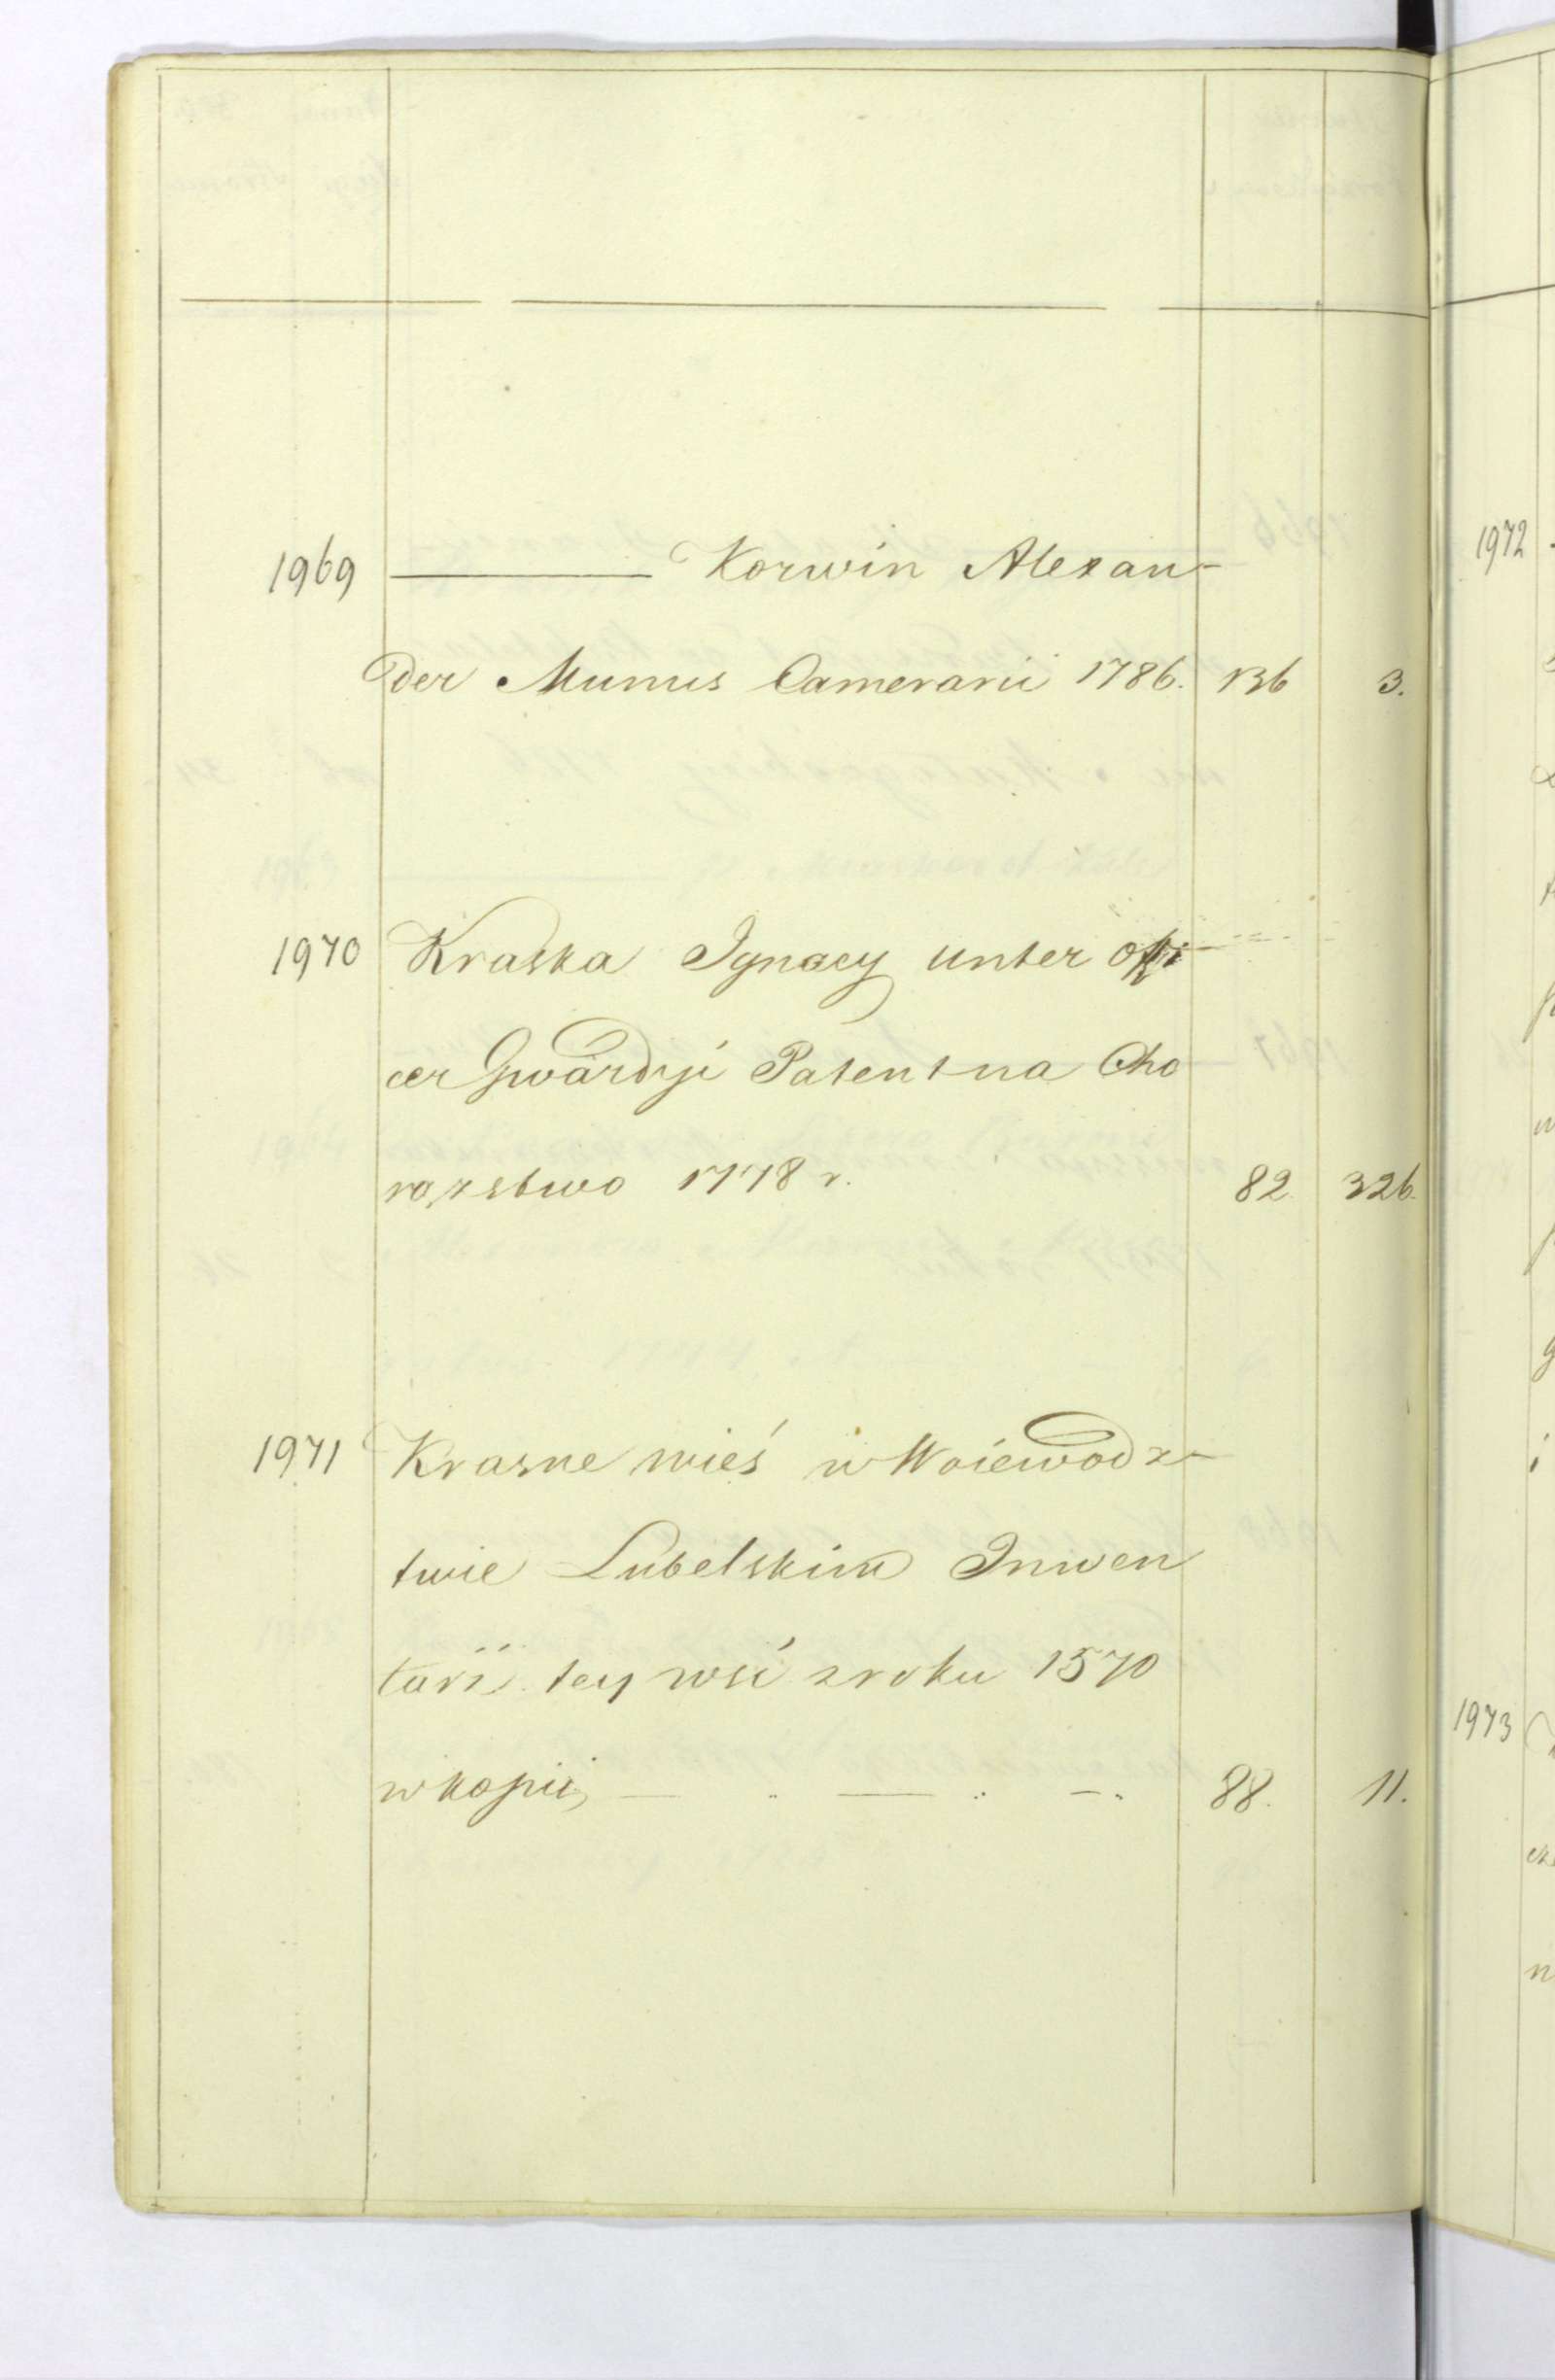 1969 ——— Korwin Alexan-
der Munus Camerarii 1786. 136 3.
1970 Kraska Ignacy unter offi-
cer Gwardyi Patent na Cho
rąztwo 1778 r. 82 326.
1971 Krasne wieś w Woiewodz-
twie Lubelskim Inwen
tarz tey wsi z roku 1570
w kopii, — .. — .. — .. 88. 11.
1972
1973